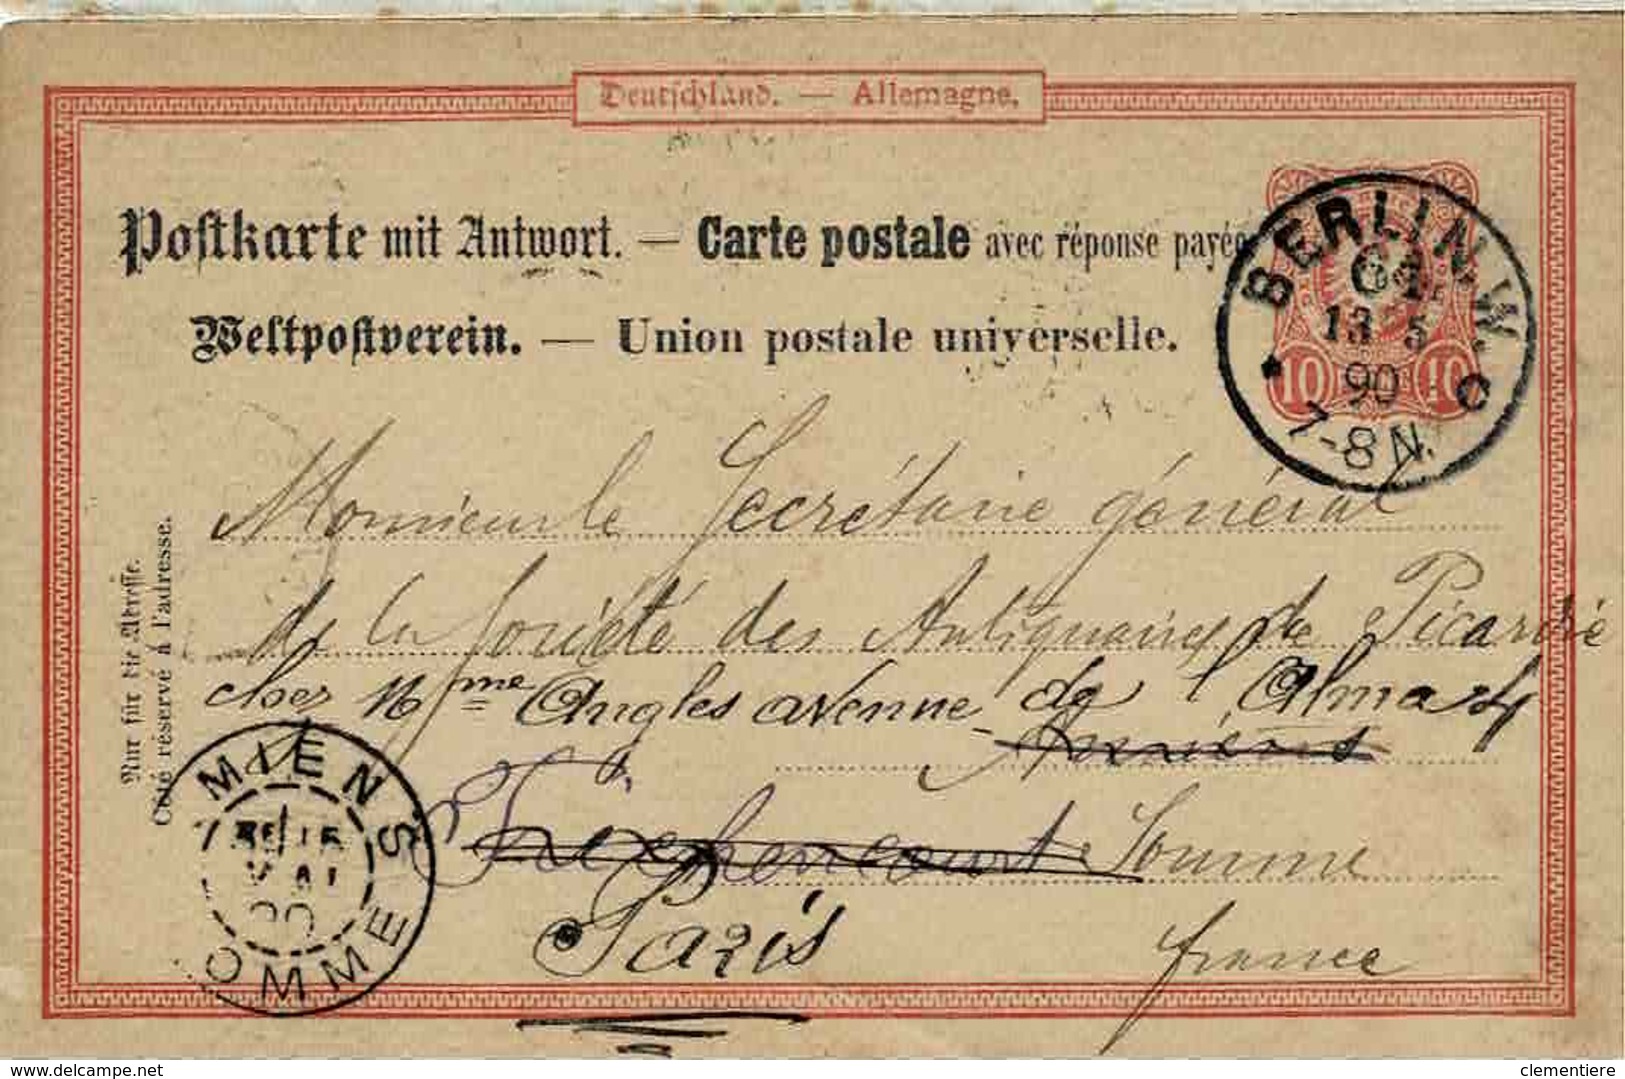 Deutschland. — Allemagne.
Postkarte mit Antwort. — Carte postale avec réponse payée
Weltpostverein. — Union postale universelle.
BERLIN.W.
13 5
90
7-8 N.
C
10 10
Monsieur le Secrétaire général
de la Société des Antiquaires de Picardie
chez Mme Angles avenue de l'Alma
Amiens
Somme
Paris
france
Nur für die Adresse.
Côté réservé à l'adresse.
AMIENS
MAI
90
SOMME
delcampe.net
clementiere